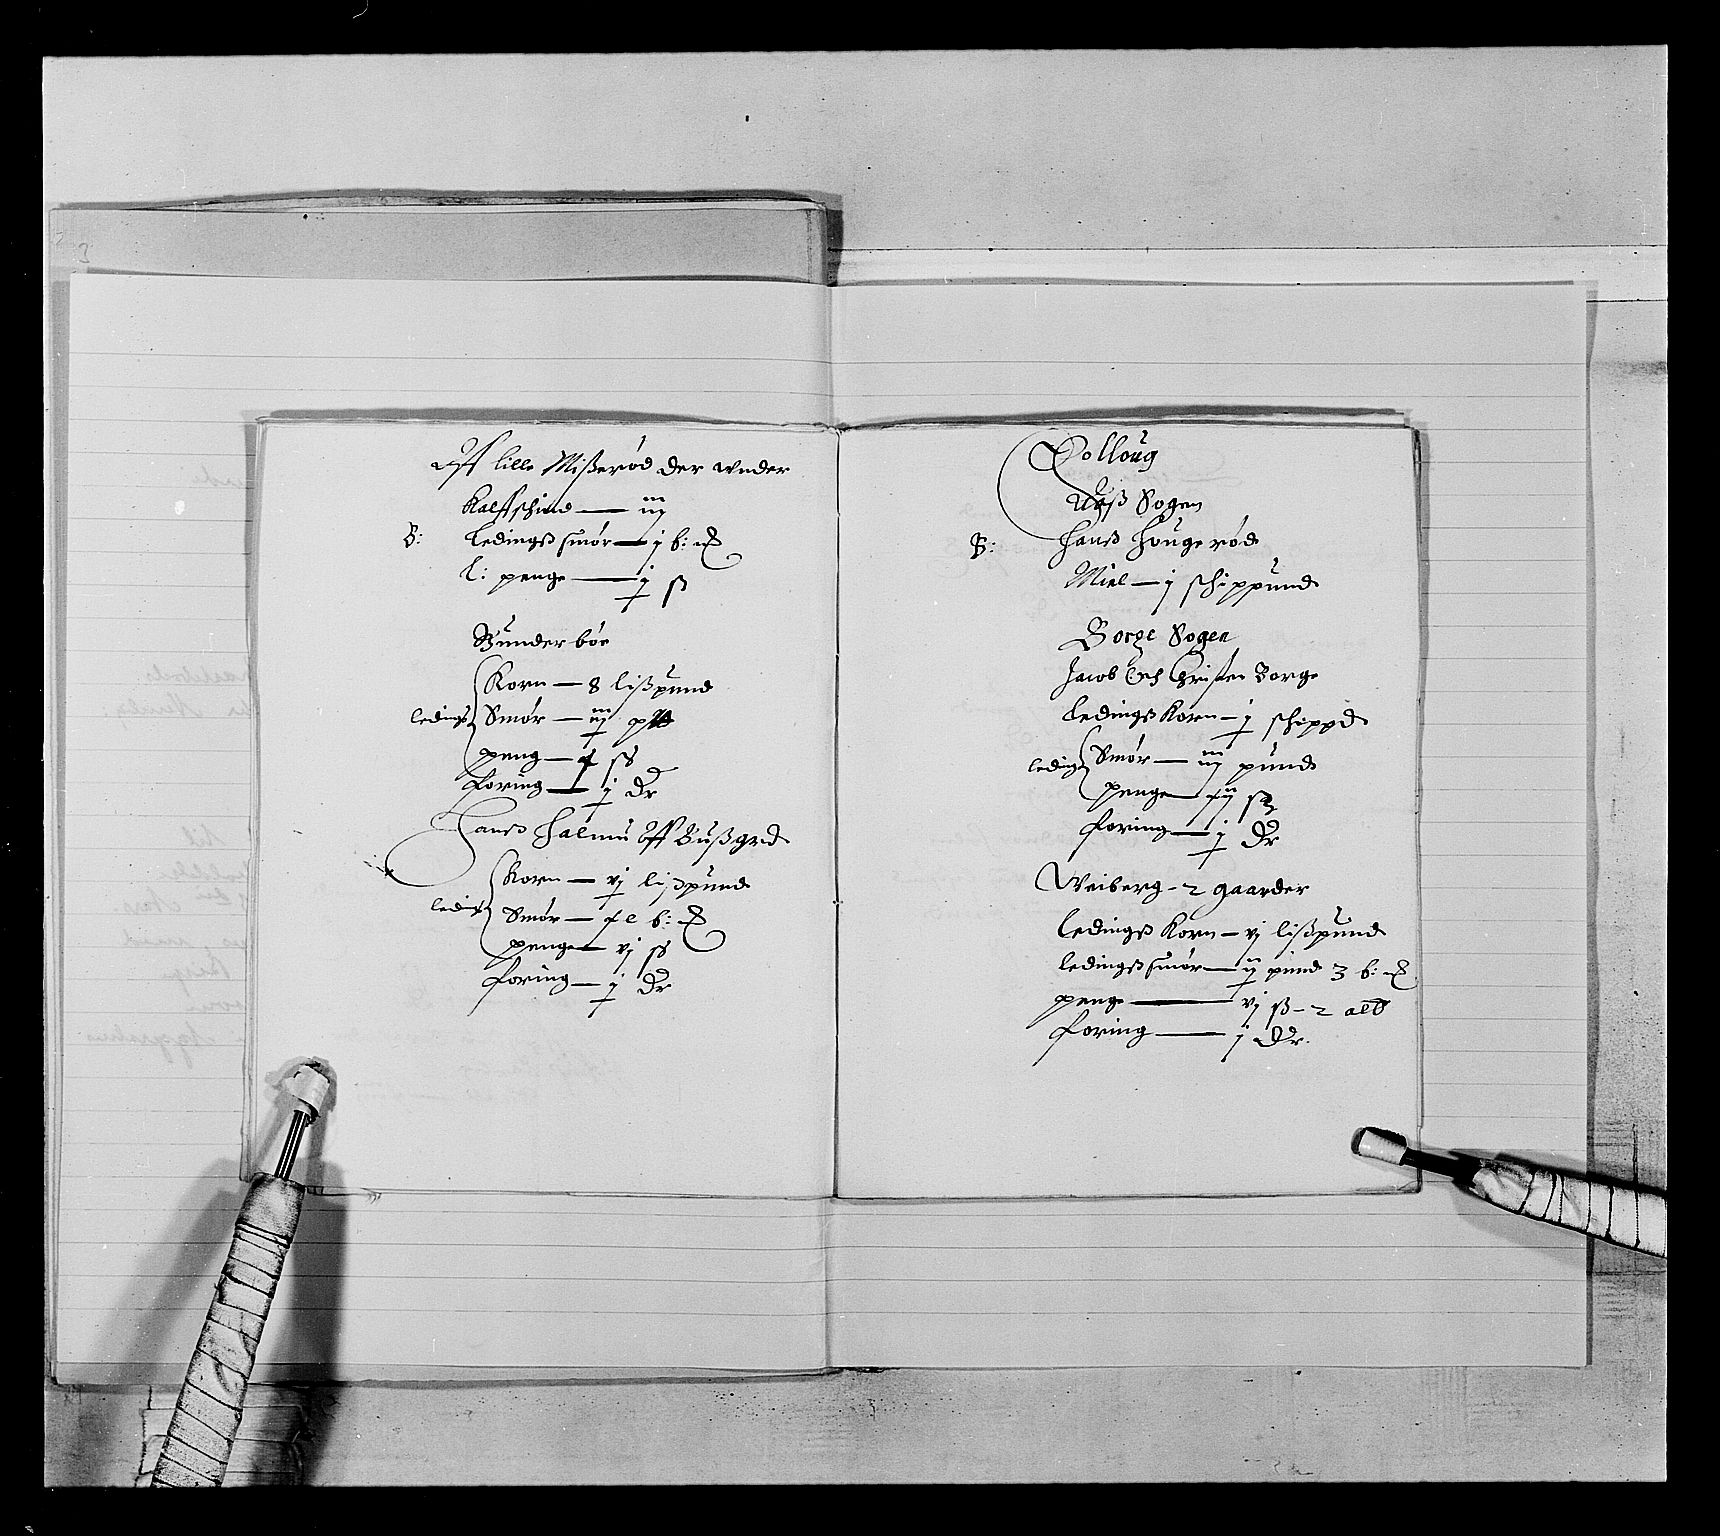 Aff lille Mißerød der wnder
Kalffschind — iiij
B: Ledingß smør — j b: mk
l: penge — j ß
Sunder bøe
Korn — 8 lißpund
ledings Smør — iiij
peng — ß
foring — j Dr
Hanß Halmu Aff Bußgrd
Korn — vj lißpund
leding Smør — b: mk
penge — vj ß
foring — j Dr
Solloug
Sogen
B: Hanß Hougerød
Miel — j schippund
Borge Sogen
Jacob Och Christen Borge
Ledingß Korn — j schippd
leding Smør — iiij pund
penge — ß
foring — j Dr
Weiberg - 2 gaarder
Ledingß Korn — vj lißpund
ledingß smør — ij pund 3 b: mk
penge — vj ß - 2 alb
foring — j Dr.